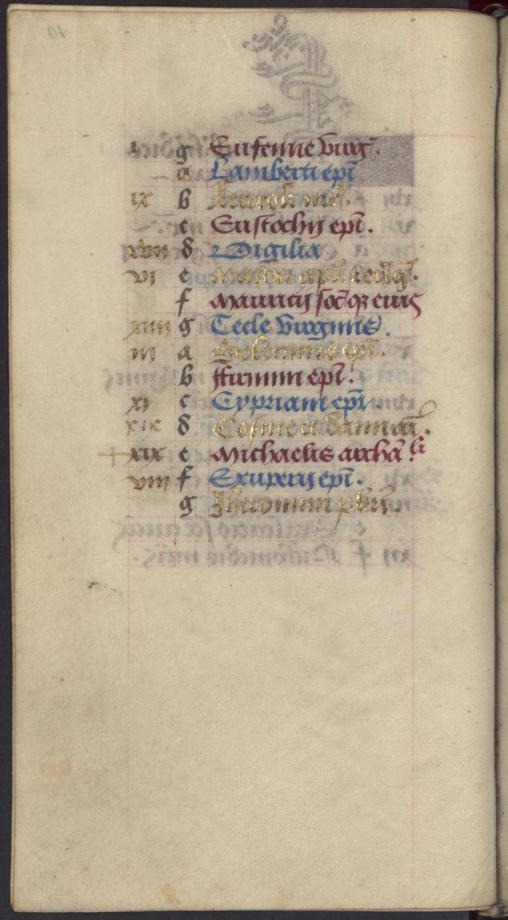 i g Susenne virg.
a Lamberti epi
ix b
c Eustochij epi.
xvii d Vigilia
vi e Mathei apli
f Mauricij soc eius
xiiii g Tecle virginis.
iii a Solennis epi.
b Firmini epi.
xi c Cypriani epi
xix d Cosme et Damiani.
xix e Michaelis archa li
viii f Exuperij epi.
g Iheronimi pbri.